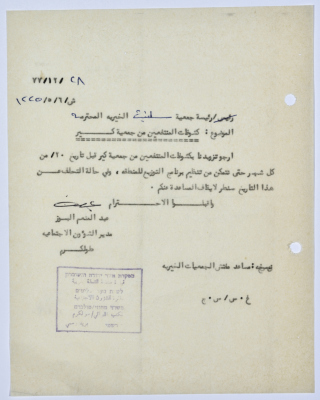 ٧٧/١٢/٢٨
ش/٦/٥/١٤٤٥
رئيس/رئيسة جمعية سلفيت الخيريه المحترمه
الموضوع : كشوفات المنتفعين من جمعية كير
ارجو تزويدنا بكشوفات المنتفعين من جمعية كير قبل تاريخ ٢٠/ من
كل شهر حتى نتمكن من تنظيم برنامج التوزيع للمنطقه ، وفي حالة التخلف عن
هذا التاريخ سنضطر لايقاف المساعدة عنكم .
واقبلوا الاحترام
عبد المنعم البوز
مدير الشؤون الاجتماعيه
طولكرم
نسخه : مساعد مفتش الجمعيات الخيريه
ع . س / س . ج